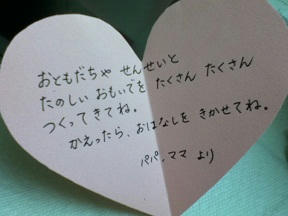 おともだちや せんせいと
たのしい おもいでを たくさん たくさん
つくってきてね。
かえったら、おはなしを きかせてね。
パパ、ママ より